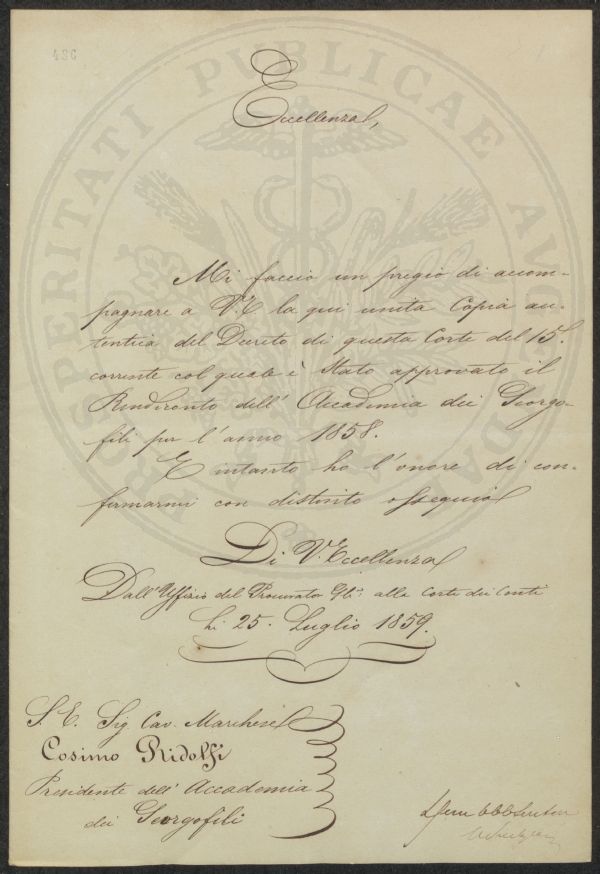 436
PROSPERITATI PUBLICAE AUGENDAE
Eccellenza,
Mi faccio un pregio di accom-
pagnare a V.E. la qui unita Copia au-
tentica del Decreto di questa Corte del 15.
corrente col quale è stato approvato il
Rendiconto dell' Accademia dei Georgo-
fili per l'anno 1858.
E intanto ho l'onore di con-
fermarmi con distinto ossequio
Di V. Eccellenza
Dall'Uffizio del Procurator Gle: alla Corte dei Conti
Li 25. Luglio 1859.
S. E. Sig. Cav. Marchese
Cosimo Ridolfi
Presidente dell' Accademia
dei Georgofili